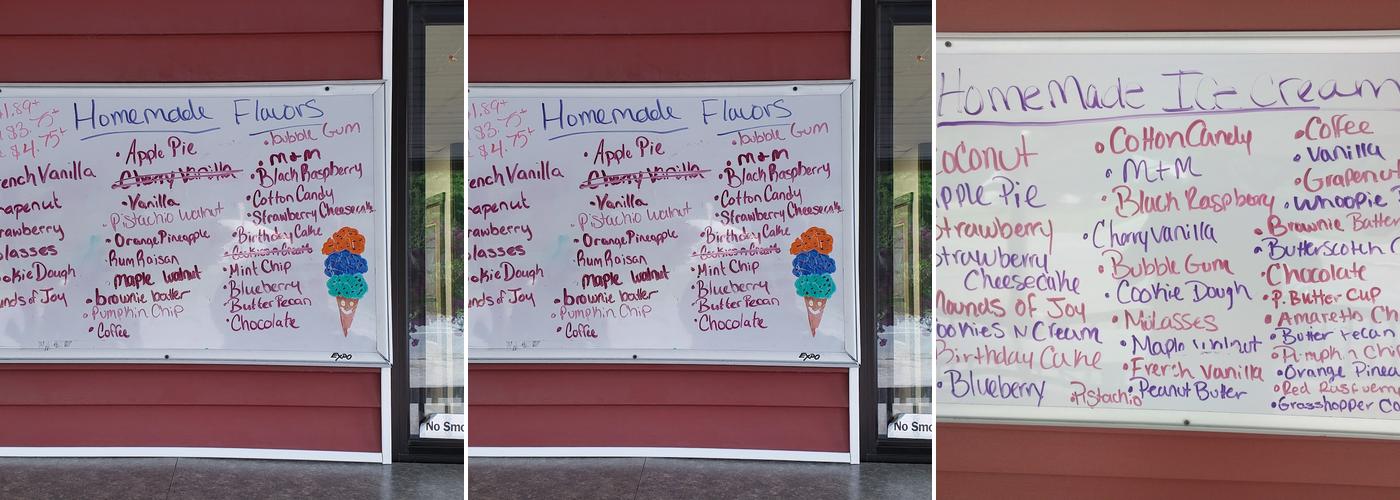 1.89+
$3.75+
$4.75+
Homemade Flavors
rench Vanilla
rapenut
rawberry
lasses
okie Dough
nds of Joy
• Apple Pie
Cherry Vanilla
• Vanilla
Pistachio Walnut
• Orange Pineapple
• Rum Raisan
maple walnut
• brownie batter
• Pumpkin Chip
• Coffee
• bubble Gum
• M+M
• Black Raspberry
• Cotton Candy
• Strawberry Cheesecake
• Birthday Cake
• Cookies n Cream
• Mint Chip
• Blueberry
• Butter Pecan
• Chocolate
EXPO
No Smo
$3.75+
$4.75+
Homemade Flavors
ench Vanilla
apenut
awberry
asses
kie Dough
ds of Joy
• Apple Pie
Cherry Vanilla
• Vanilla
Pistachio Walnut
• Orange Pineapple
• Rum Raisan
maple walnut
• brownie batter
• Pumpkin Chip
• Coffee
• bubble Gum
• M+M
• Black Raspberry
• Cotton Candy
• Strawberry Cheesecake
• Birthday Cake
• Cookies n Cream
• Mint Chip
• Blueberry
• Butter Pecan
• Chocolate
EXPO
No Smo
HomeMade Ice Cream
oconut
pple Pie
trawberry
trawberry
Cheesecake
ounds of Joy
ookies N Cream
Birthday Cake
• Blueberry
• Cotton Candy
• M+M
• Black Raspberry
• Cherry Vanilla
• Bubble Gum
• Cookie Dough
• Molasses
• Maple Walnut
• French Vanilla
• Pistachio
• Peanut Butter
• Coffee
• Vanilla
• Grapenut
• Whoopie
• Brownie Batte
• Butterscotch
• Chocolate
• P. Butter Cup
• Amaretto Ch
• Butter Pecan
• Pumpkin Chip
• Orange Pinea
• Red Raspberry
• Grasshopper Co